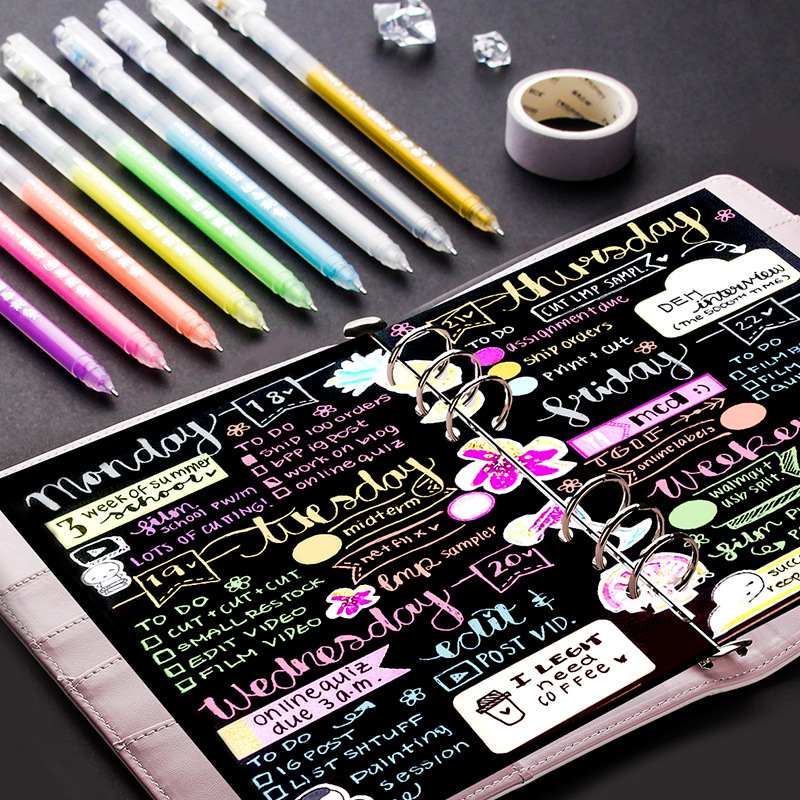 monday
18
TO DO
SHIP 100 ORDERS
BPP IG POST
work on blog
online quiz
3 week of summer
school
film
SCHOOL PW/M
LOTS OF CUTING!
tuesday
midterm
netflix
lmp sampler
19
TO DO
CUT+CUT+CUT
SMALL RESTOCK
EDIT VIDEO
FILM VIDEO
wednesday
20
online quiz
due 3 a.m.
edit &
POST VID.
TO DO
IG POST
LIST SHTUFF
painting
session
I LEGIT
need
COFFEE
thursday
21
CUT LMP SAMPL
TO DO
assignment due
ship orders
print + cut
DEM interview
(THE 5000TH TIME)
friday
22
mcd :)
TGIF
onlinelabels
TO DO
FILM
walmart
film